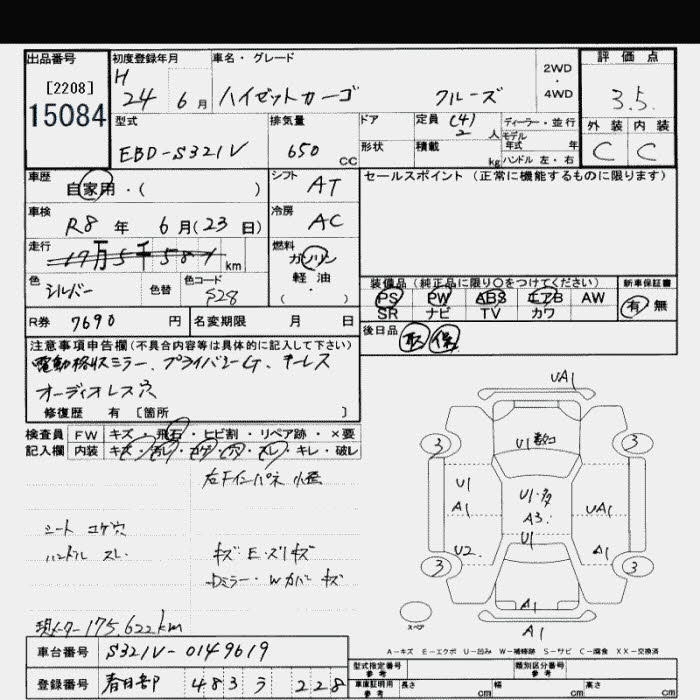 出品番号
[2208]
15084
初度登録年月
H
24 6 月
車名・グレード
ハイゼットカーゴ クルーズ
2WD
・
4WD
評価点
3.5
外装 内装
C C
型式
EBD-S321V
排気量
650 cc
ドア
形状
定員 (4)
2 人
積載 kg
ディーラー・並行
モデル
年式 年
ハンドル 左・右
車歴
自家用・( )
シフト
AT
車検
R8 年 6 月(23 日)
冷房
AC
走行
17万5千587 km
燃料
ガソリン
軽油
・
( )
色
シルバー
色替
色コード
S28
R券 7690 円
名変期限 月 日
セールスポイント(正常に機能するものに限ります)
装備品(純正品に限り○をつけてください)
PS PW ABS エアB AW
SR ナビ TV カワ
新車保証書
有 無
後日品
取 保
注意事項申告欄(不具合内容等は具体的に記入して下さい)
電動格納ミラー、プライバシーG、キーレス
オーディオレス穴
修復歴 有 [箇所 ]
検査員
記入欄
FW キズ・飛石・ヒビ割・リペア跡・×要
内装 キズ・汚レ・コゲ・穴・スレ・キレ・破レ
右Fインパネ 小傷
シート コゲ穴
ハンドル スレ
キズ E・スリキズ
Dミラー・Wカバー キズ
現メーター175,622km
車台番号 S321V-0149619
登録番号 春日部 483 う 228
UA1
3 3
U1
U1
A1
U1・多
A3.
UA1
U1
U2.
A1
3 3
A1
A1
スペア
A-キズ E-エクボ U-凹み W-補修跡 S-サビ C-腐食 XX-交換済
型式指定番号
参考
類別区分番号
参考
車庫証明用
参考
長さ cm 幅 cm 高さ cm